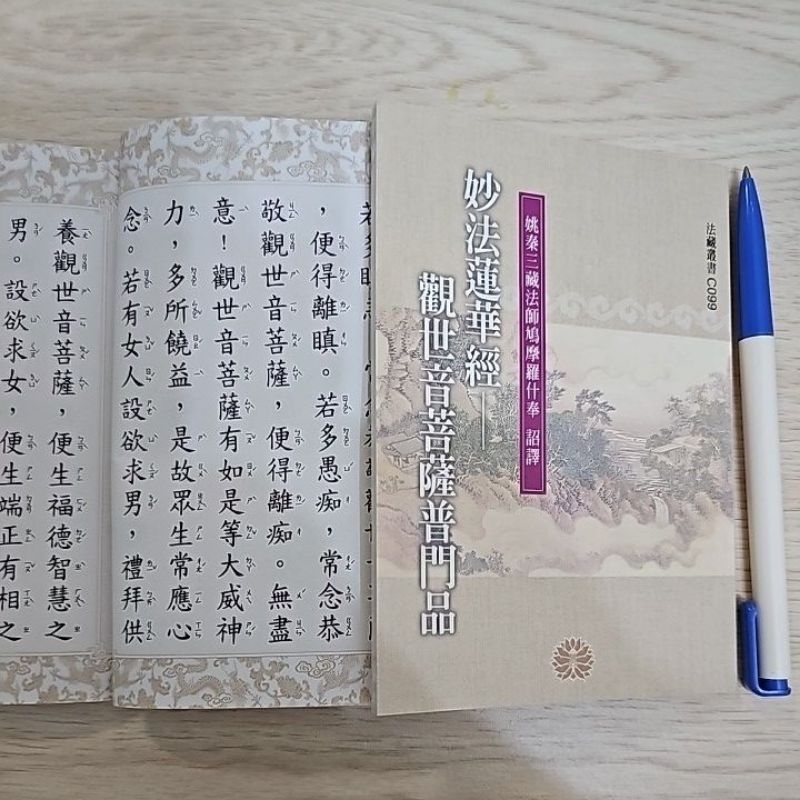 法藏叢書 C099
姚秦三藏法師鳩摩羅什奉 詔譯
妙法蓮華經—
觀世音菩薩普門品
，便得離瞋。若多愚痴，常念恭
敬觀世音菩薩，便得離痴。無盡
意！觀世音菩薩有如是等大威神
力，多所饒益，是故眾生常應心
念。若有女人設欲求男，禮拜供
養觀世音菩薩，便生福德智慧之
男。設欲求女，便生端正有相之